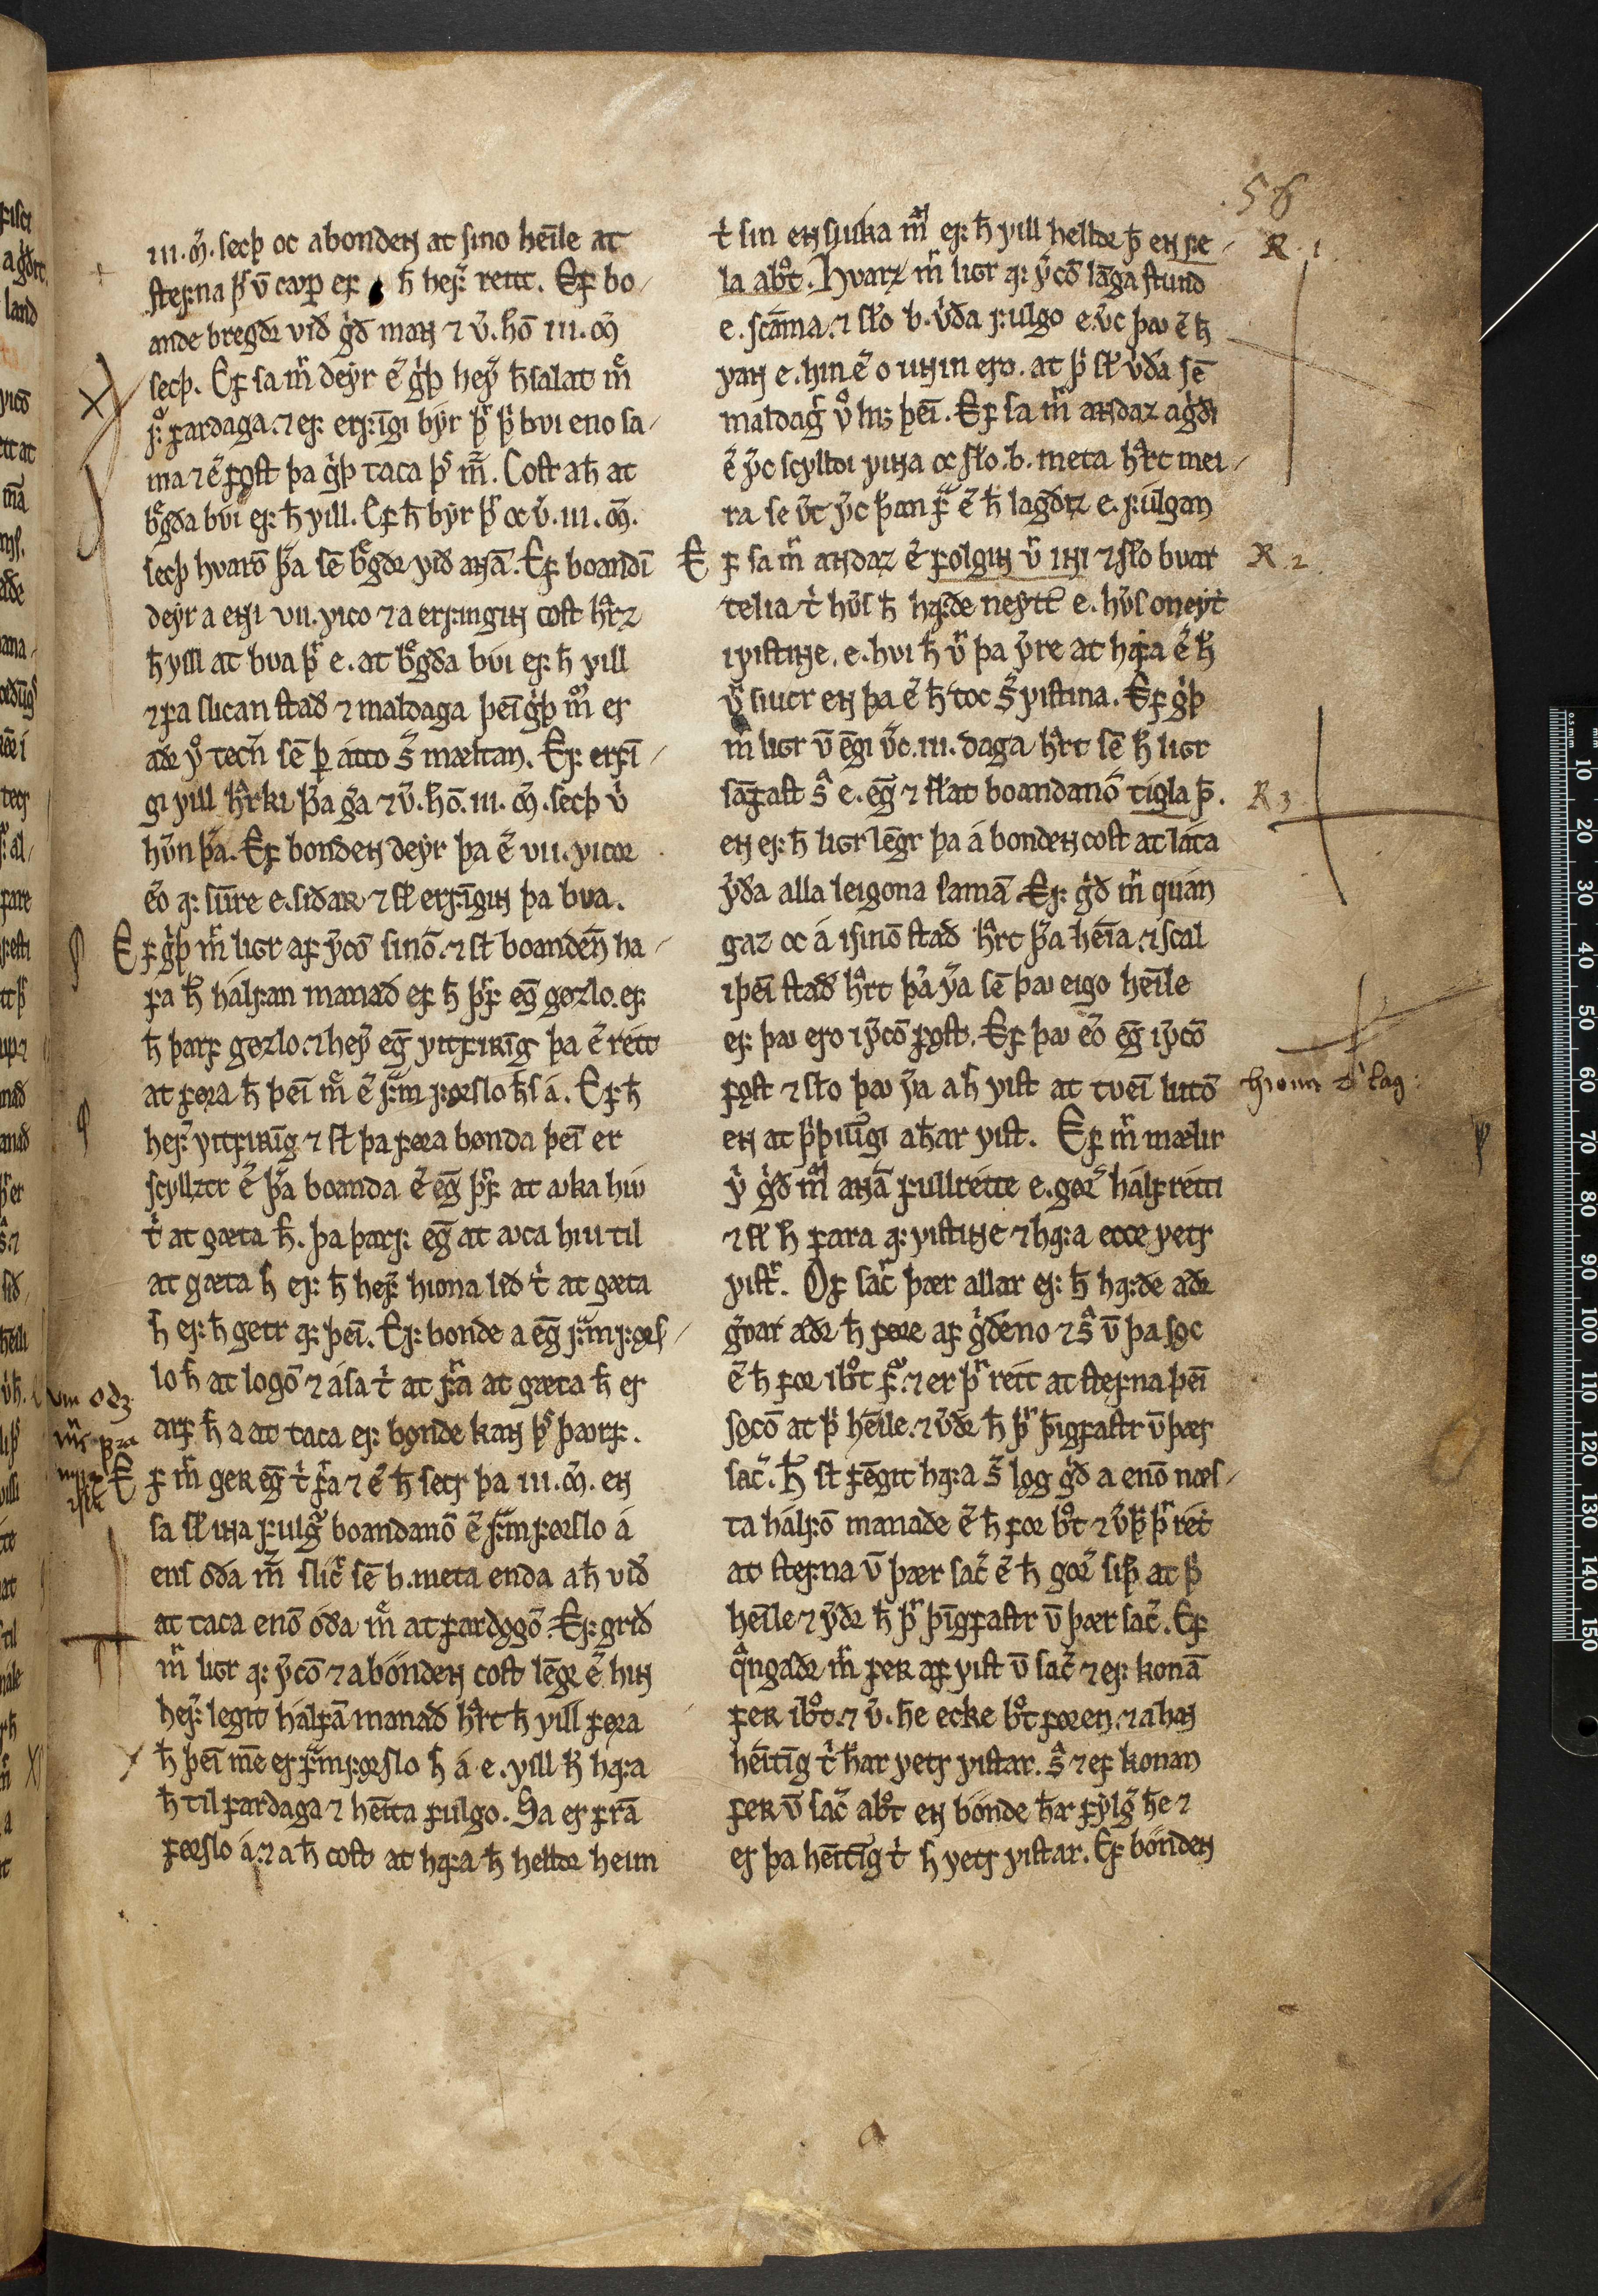 56
III. mͬ. secþ oc a bonden at sino heīle at
stefna þͥ v̄ cap ef h̅ hef͛ reitt. Ef bo-
ande bregdr við g͛ð man ⁊ v̓. hō III. mͬ
secþ. Ef sa m̅ deyr e͛ g͛þ hef͛ h̅ salat mͬ
f͛ fardaga. ⁊ ef erfīgi byr þͬ þͥ bvi eno sa-
ma ⁊ e͛ fǫst þa g͛þ taca þͥ m̅. Cost a h̅ at
bͤgða bvi ef h̅ vill. Ef h̅ byr þͬ oc v̓. III. mͬ.
secþ hvarō þ͛a sē bͤgdr við anā. Ef boandī
deyr a eni VII. vico ⁊ a erfingin cost hͦrz
h̅ vill at bva þͬ e. at bͤgða bvi ef h̅ vill
⁊ fa slican stað ⁊ maldaga þeī g͛þ mͦ er
adr vͦ tech̅ sē þ̄ atto s͛ mæltan. Ef erfī-
gi vill hͦrki þ͛a g͛a ⁊ v̓. hō. III. mͬ. secþ v̓
hv̓n þ͛a. Ef bonden deyr þa e͛ VII. vicor
e͛o af sūre e. siðar ⁊ sl̅ erfīgin þa bva.
Ef g͛þ m̅ ligr af v͛cō sinō. ⁊ sl̅ boanden ha-
fa h̅ halfan manað ef h̅ þͬf eg̅ gǫrzlo. ef
h̅ þarf gǫrzlo. ⁊ hef͛ eg̅ vitfirīg þa e͛ rétt
at fǫra h̅ þeī mͬ e͛ fͫm fǫrslo h̅s á. Ef h̅
hef͛ vitfirīg ⁊ sl̅ þa fǫra bonda þeī er
scyllztr e͛ þ͛a boanda e͛ eg̅ þͬf at aka hiu
t̓ at gæta h̅. þa þarf eg̅ at aca hiu til
at gæta h̅ ef h̅ hef͛ hiona lið t̓ at gæta
h̅ ef h̅ getr af þeī. Ef bonde a eg̅ fͫmfǫrs-
lo h̅ at logō ⁊ á sa t̓ at fͬa at gæta h̅ er
arf h̅ a at taca ef bonde kan þͥ þarf.
Ef m̅ ger eg̅ t̓ fͬa ⁊ e͛ h̅ secr þa III. mͬ. en
sa sl̅ ina fulgͦ boandanō e͛ fͫm fǫrslo á
ens óða m̅ slic͛ sē b. meta enda a h̅ við
at taca enō óða mͬ at fardǫgō. Ef grið
m̅ ligr af v͛cō ⁊ a bonden cost lēgr e͛ hin
hef͛ legit halfā manað hͦrt h̅ vill fǫra
h̅ þeī mē er fͫmfǫrslo h̅ á e. vill h̅ hafa
h̅ til fardaga ⁊ heīta fulgo. Sa er frā
fǫrslo á. ⁊ a h̅ cost at hafa h̅ helldr heim
t̓ sin en siuka mͫ ef h̅ vill helldr þ̄ en fe-
la abͦt. Hvarz m̅ ligr af v͛cō lāga stund
e. scāma. ⁊ sl̅o b. v͛ða fulgo e. v͛c þav e͛ h̅
van e. hin e͛ o unin ero. at þͥ sl̅ v͛ða sē
maldag͛ vͦ h̅s þeī. Ef sa m̅ andaz a g͛ði
e͛ v͛c scylldi vina oc sl̅o. b. meta hͦrt mei-
ra se v͛t v͛c þan f e͛ h̅ lagðiz e. fulgan
Ef sa m̅ andaz e͛ folgin v͛ ini ⁊ sl̅o bvar
telia t̓ hv̓s h̅ hafde neytt e. hv̓s oneyt
i vistine. e. hvi h̅ v͛ þa v͛re at hafa e͛ h̅
v͛ siucr en þa e͛ h̅ toc s͛ vistina. Ef g͛þ
m̅ ligr v̄ ēgi v͛c. III. daga hͦrt sē h̅ ligr
sāfast sͣ e. eg̅ ⁊ sl̅at boandanō tigla þ̄.
en ef h̅ ligr lēgr þa á bonden cost at láta
v͛ða alla leigona samā Ef g͛ð m̅ quán
gaz oc á i sinō stað hͦrt þ͛a heīa. ⁊ scal
i þeī stað hͦrt þ͛a v͛a sē þav eigo heīle
ef þav ero i v͛cō fǫst. Ef þav e͛o eg̅ i v͛cō
fǫst ⁊ sl̅o þav v͛a a h̅ vist at tveī lutō
en at þͥþiugi a h̅ar vist. Ef m̅ mælir
v͛ g͛ð mͫ anā fullrétte e. gǫr͛ halfretti
⁊ sl̅ h̅ fara af vistine ⁊ hafa ecce vetr
vistͬ. Of sac͛ þær allar ef h̅ hafde adr
gͮar adr h̅ fǫre af g͛ðeno ⁊ sͣ v̄ þa sǫc
e͛ h̅ fǫr i bͦt f. ⁊ er þͬ rétt at stefna þeī
sǫcō at þͥ heīle. ⁊ v͛dr h̅ þͬ þīgfastr v̄ þær
sac͛. h̅ sl̅ fēgit hafa s͛ lǫg g͛ð a enō næs-
ta halfō manade e͛ h̅ fǫr bͦt ⁊ v͛þ þͬ rét
at stefna v̄ þær sac͛ e͛ h̅ gǫr͛ siþ at þͥ
heīle ⁊ v͛dr h̅ þͬ þīgfastr v̄ þær sac͛. Ef
qͣngadr m̅ fer af vist v̄ sac͛ ⁊ ef konā
fer i bͦt. ⁊ v̓. h̅e ecke bͦt fǫren. ⁊ a han
heītīg t̓ h̅ar vetr vistar. sͣ ⁊ ef konan
fer v̄ sac͛ abͦt en bonde h̅ar fylg͛ h̅e ⁊
er þa heītīg t̓ h̅ vetr vistar. Ef bonden
R. 1
R. 2
R 3